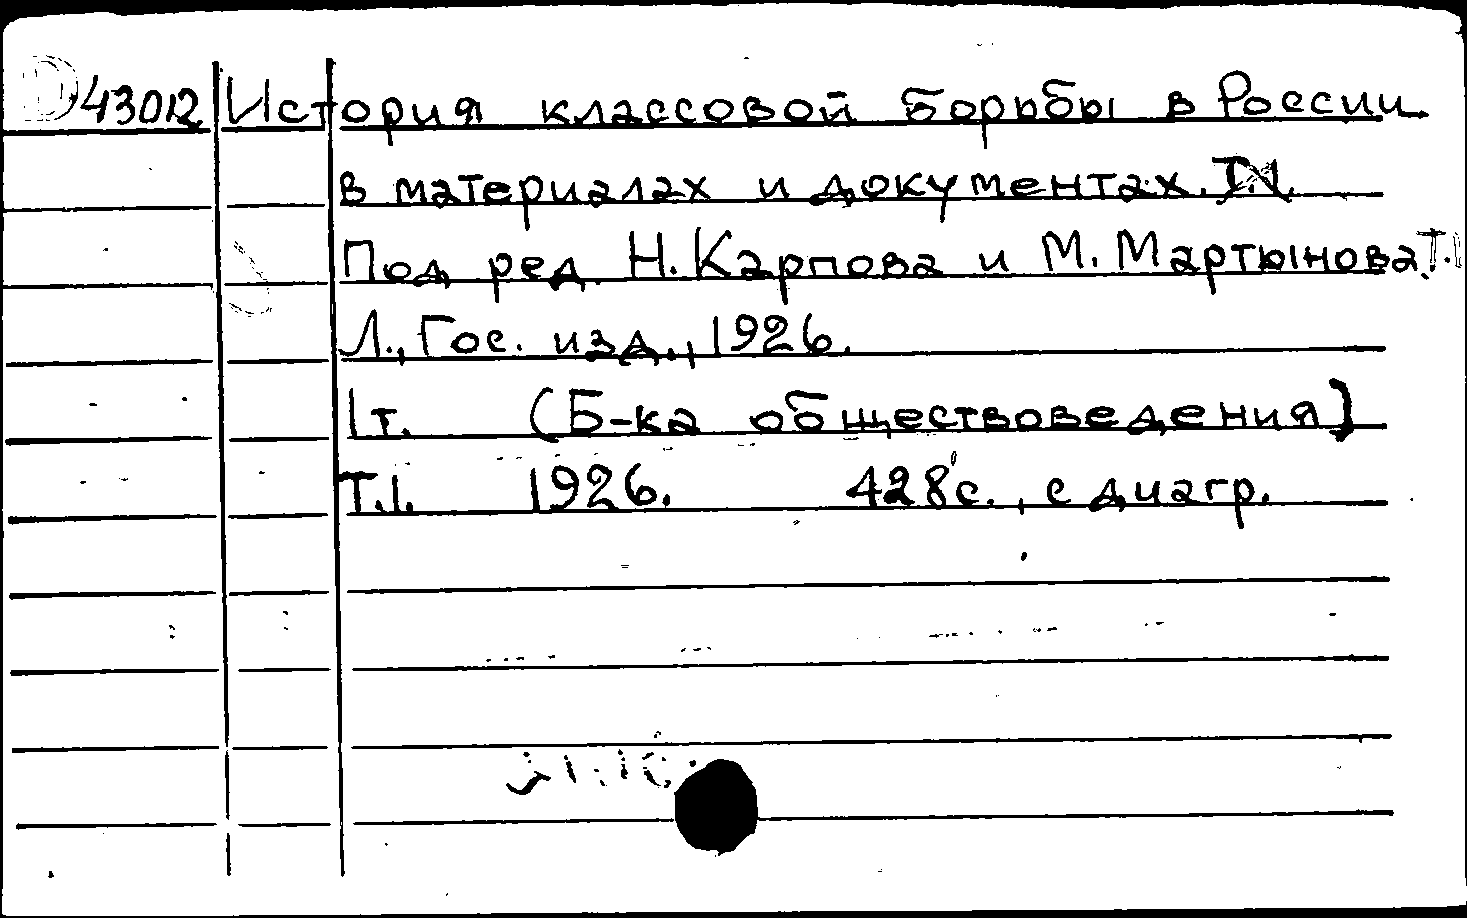 D43012 История классовой борьбы в России
в материалах и документах.
Под ред. Н. Карпова и М. Мартынова. Т.1
Л., Гос. изд., 1926.
1 т. (Б-ка обществоведения)
Т.1. 1926. 428 с., с диагр.